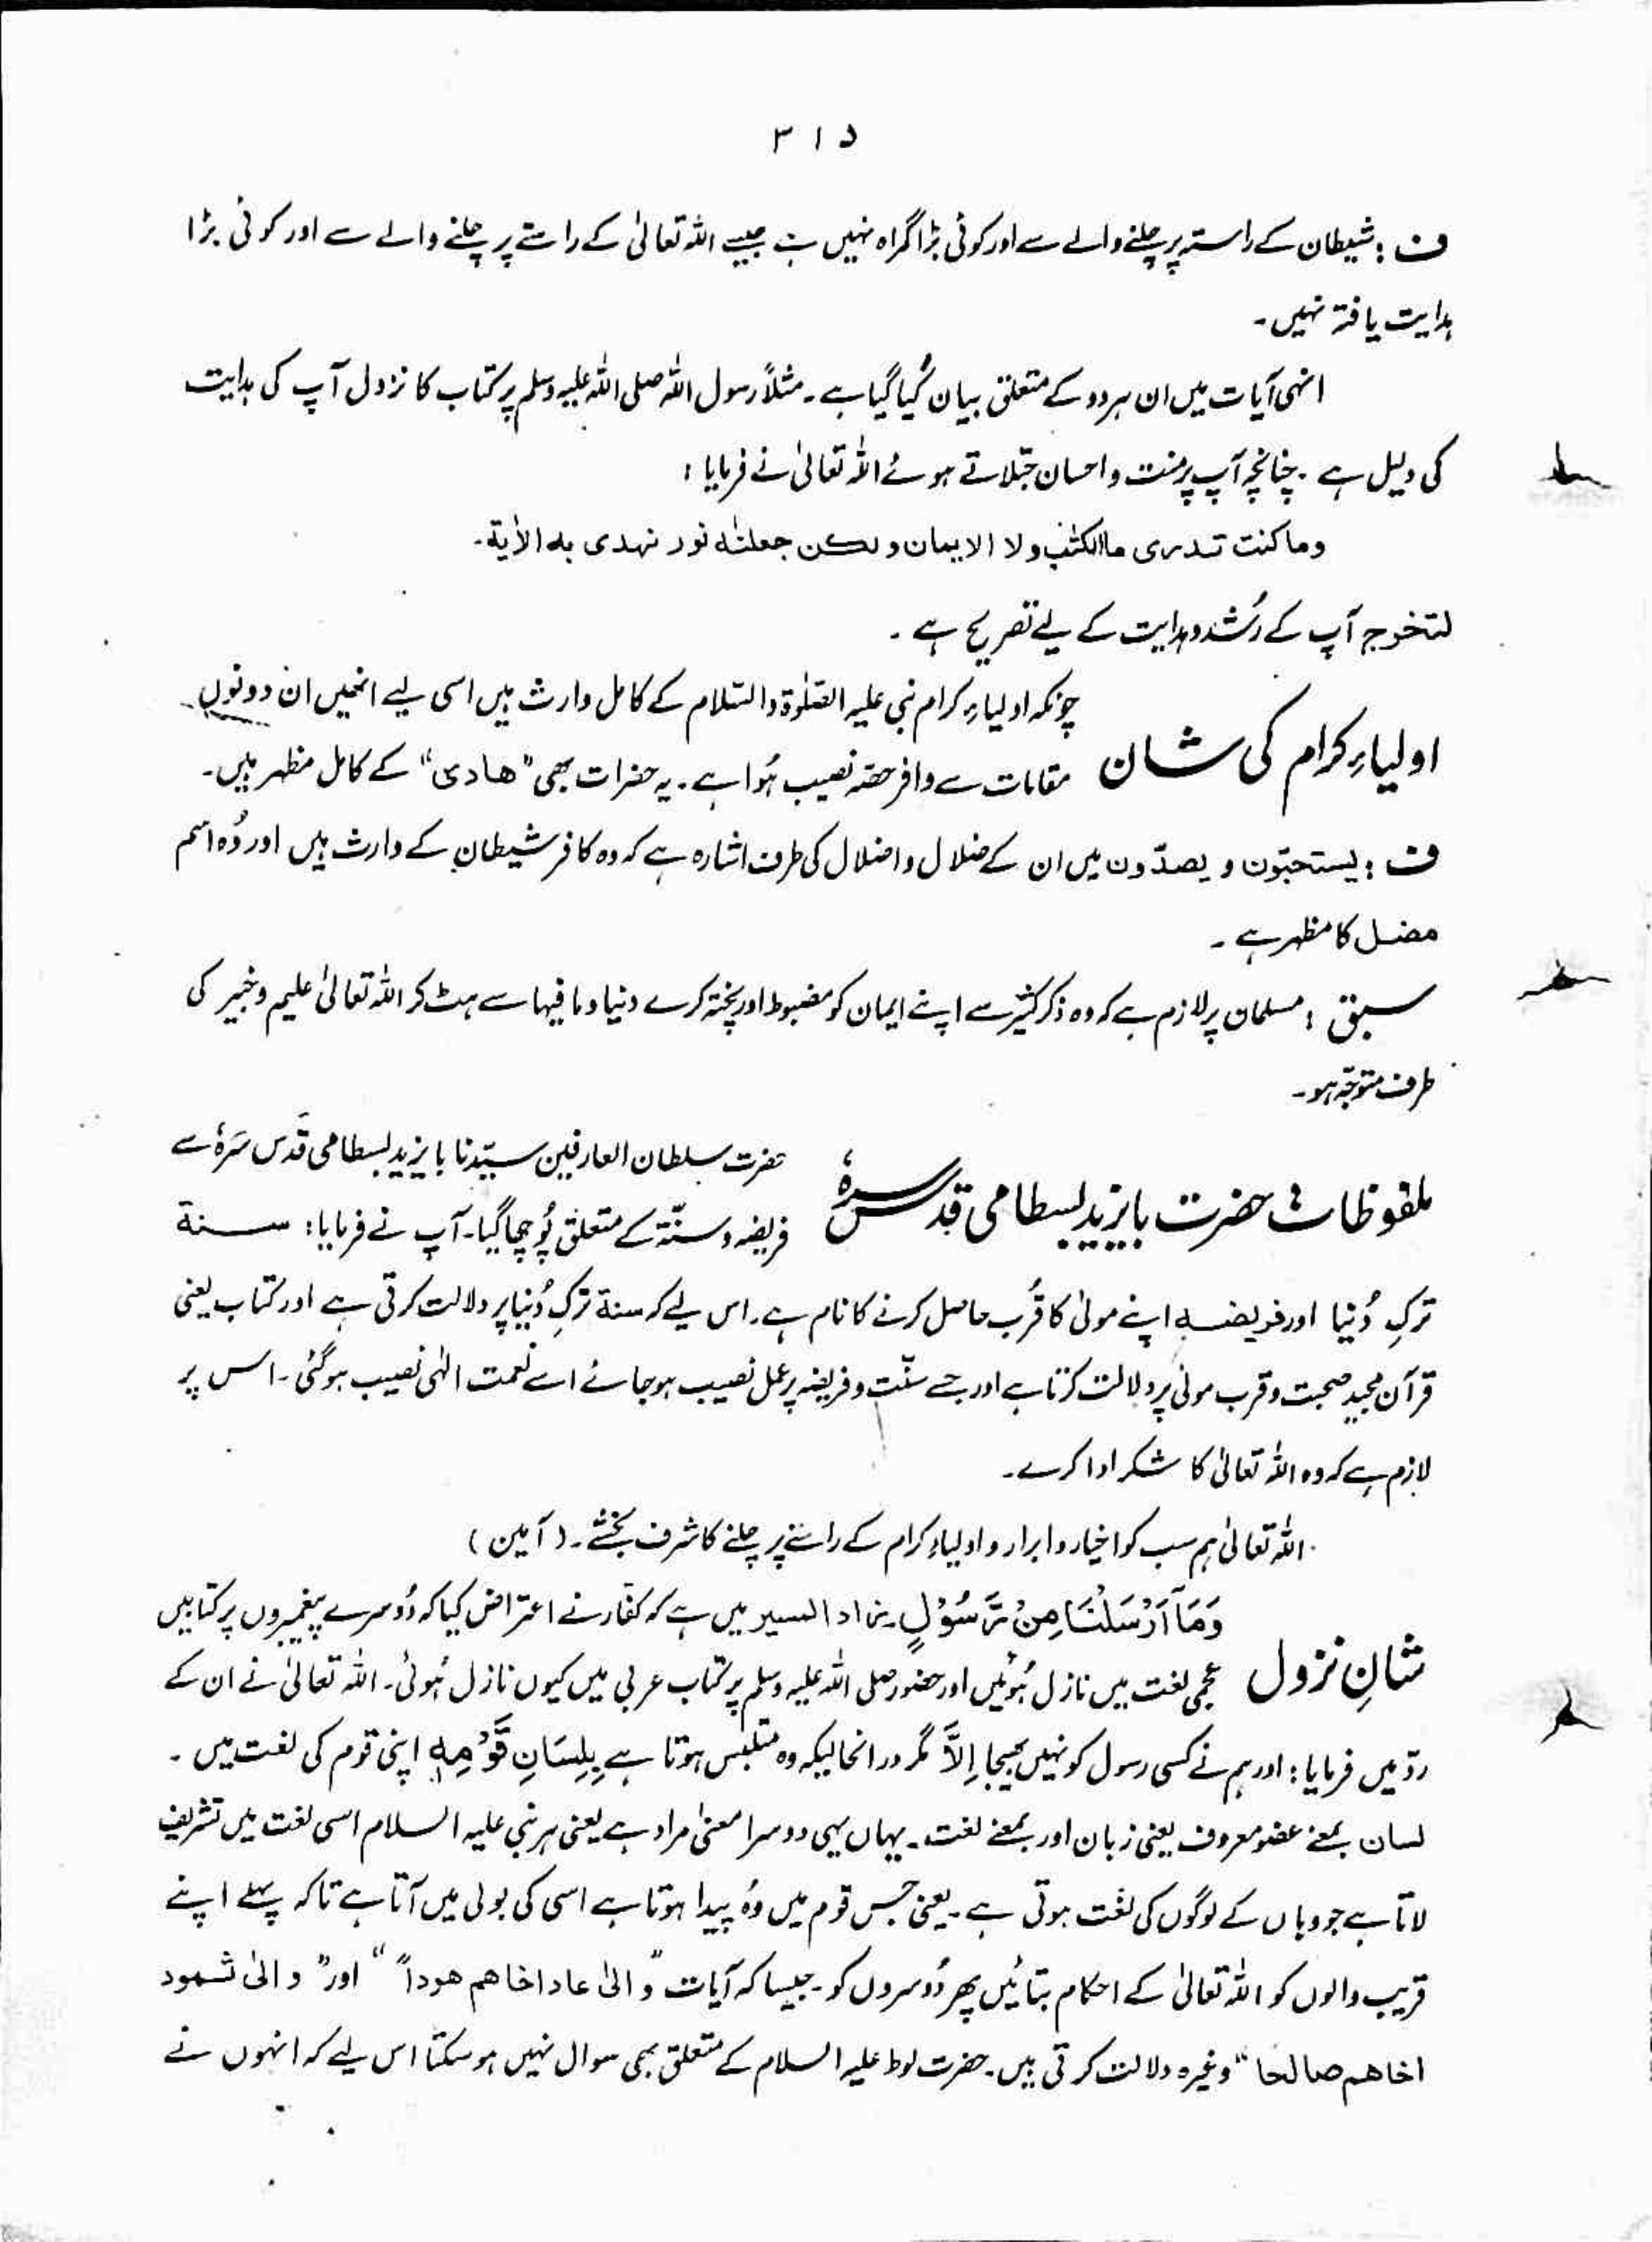 ۳۱۵
ف : شیطان کے راستہ پر چلنے والے سے اور کوئی بڑا گمراہ نہیں جیسے اللہ تعالیٰ کے راستے پر چلنے والے سے اور کوئی بڑا
ہدایت یافتہ نہیں۔
انہی آیات میں ان ہر دو کے متعلق بیان کیا گیا ہے۔ مثلاً رسول اللہ صلی اللہ علیہ وسلم پر کتاب کا نزول آپ کی ہدایت
کی دلیل ہے۔ چنانچہ آپ پر منت و احسان جتلاتے ہوئے اللہ تعالیٰ نے فرمایا :
وما كنت تدرى ما الكتٰب ولا الايمان ولكن جعلنٰه نور نهدى به الاٰية۔
لتخرج آپ کے رُشد و ہدایت کے لیے تصریح ہے۔
اولیاءِ کرام کی شان
چونکہ اولیاءِ کرام نبی علیہ الصّلوٰۃ والسّلام کے کامل وارث ہیں اسی لیے انھیں ان دونوں
مقامات سے وافر حصّہ نصیب ہُوا ہے۔ یہ حضرات بھی "ھادی" کے کامل مظہر ہیں۔
ف : یستحبّون و یصدّون میں ان کے ضلال و اضلال کی طرف اشارہ ہے کہ وہ کافر شیطان کے وارث ہیں اور وُہ اسم
مضل کا مظہر ہے۔
سبق : مسلمان پر لازم ہے کہ وہ ذکر کثیر سے اپنے ایمان کو مضبوط اور پختہ کرے دنیا و مافیہا سے ہٹ کر اللہ تعالیٰ علیم و خبیر کی
طرف متوجّہ ہو۔
ملفوظات حضرت بایزید بسطامی قدس سرہٗ
حضرت سلطان العارفین سیّدنا بایزید بسطامی قدّس سَرّہٗ سے
فریضہ و سنّۃ کے متعلق پُوچھا گیا۔ آپ نے فرمایا: سنۃ
ترکِ دُنیا اور فریضہ اپنے مولیٰ کا قُرب حاصل کرنے کا نام ہے۔ اس لیے کہ سنۃ ترکِ دُنیا پر دلالت کرتی ہے اور کتاب یعنی
قرآن مجید صحبت و قرب مولیٰ پر دلالت کرتا ہے اور جسے سنّت و فریضہ پر عمل نصیب ہو جائے اسے نعمت الٰہی نصیب ہو گئی۔ اس پر
لازم ہے کہ وہ اللہ تعالیٰ کا شکر ادا کرے۔
اللہ تعالیٰ ہم سب کو اخیار و ابرار و اولیاء کرام کے راستے پر چلنے کا شرف بخشے۔ (آمین)
شانِ نزول
وَمَآ اَرْسَلْنَا مِنْ رَّسُوْلٍ۔ زاد المسیر میں ہے کہ کفّار نے اعتراض کیا کہ دُوسرے پیغمبروں پر کتابیں
عجمی لغت میں نازل ہُوئیں اور حضور صلی اللہ علیہ وسلم پر کتاب عربی میں کیوں نازل ہُوئی۔ اللہ تعالیٰ نے ان کے
ردّ میں فرمایا: اور ہم نے کسی رسول کو نہیں بھیجا اِلاَّ مگر در انحالیکہ وہ متلبس ہوتا ہے بِلِسَانِ قَوْمِهٖ اپنی قوم کی لغت میں۔
لسان بمعنے عضو معروف یعنی زبان اور بمعنے لغت۔ یہاں یہی دوسرا معنیٰ مراد ہے یعنی ہر نبی علیہ السلام اسی لغت میں تشریف
لاتا ہے جو وہاں کے لوگوں کی لغت ہوتی ہے۔ یعنی جس قوم میں وُہ پیدا ہوتا ہے اسی کی بولی میں آتا ہے تاکہ پہلے اپنے
قریب والوں کو اللہ تعالیٰ کے احکام بتائیں پھر دُوسروں کو۔ جیسا کہ آیات "والیٰ عاد اخاھم ھوداً" اور "والیٰ ثمود
اخاھم صالحا" وغیرہ دلالت کرتی ہیں۔ حضرت لوط علیہ السلام کے متعلق بھی سوال نہیں ہو سکتا اس لیے کہ انہوں نے